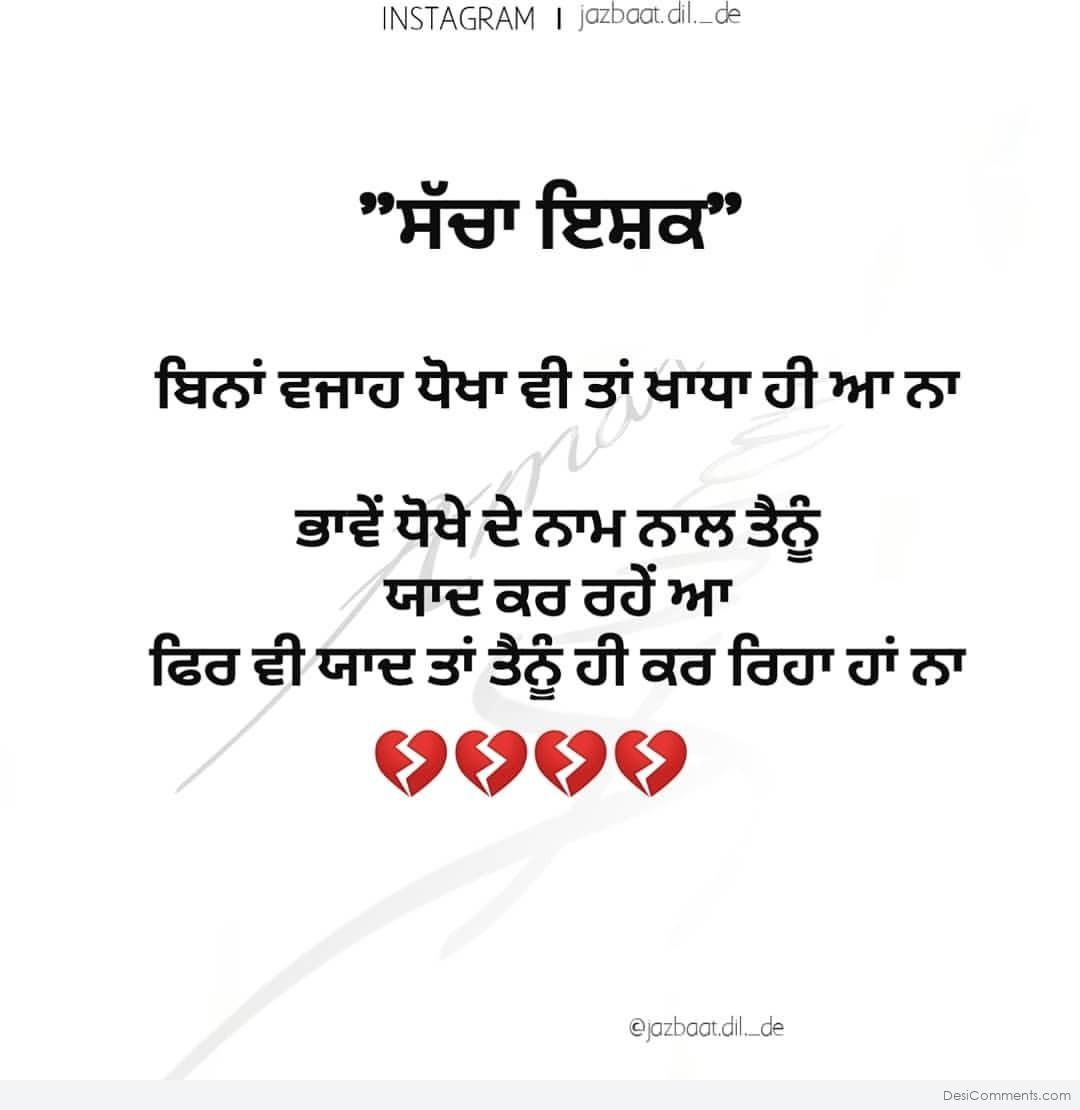 INSTAGRAM I jazbaat.dil._de
”ਸੱਚਾ ਇਸ਼ਕ”
ਬਿਨਾਂ ਵਜਾਹ ਧੋਖਾ ਵੀ ਤਾਂ ਖਾਧਾ ਹੀ ਆ ਨਾ
ਭਾਵੇਂ ਧੋਖੇ ਦੇ ਨਾਮ ਨਾਲ ਤੈਨੂੰ
ਯਾਦ ਕਰ ਰਹੇਂ ਆ
ਫਿਰ ਵੀ ਯਾਦ ਤਾਂ ਤੈਨੂੰ ਹੀ ਕਰ ਰਿਹਾ ਹਾਂ ਨਾ
💔💔💔💔
@jazbaat.dil._de
DesiComments.com